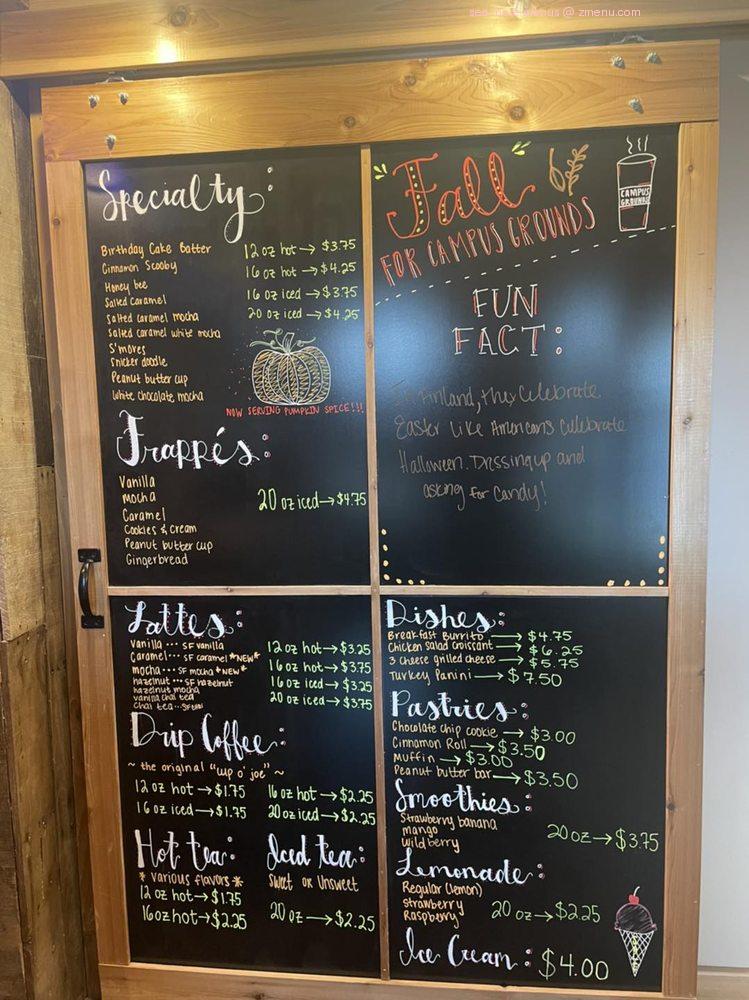 @ zmenu.com
Specialty:
Birthday Cake Batter
Cinnamon Scooby
Honey bee
Salted caramel
Salted caramel mocha
Salted caramel white mocha
S'mores
Snickerdoodle
Peanut butter cup
White chocolate mocha
12 oz hot → $3.75
16 oz hot → $4.25
16 oz iced → $3.75
20 oz iced → $4.25
NOW SERVING PUMPKIN SPICE!!!
Frappés:
Vanilla
Mocha
Caramel
Cookies & cream
Peanut butter cup
Gingerbread
20 oz iced → $4.75
Fall
FOR CAMPUS GROUNDS
CAMPUS
GROUNDS
FUN
FACT:
In Finland, they celebrate
Easter like Americans celebrate
Halloween. Dressing up and
asking for candy!
Lattes:
Vanilla ... SF vanilla
Caramel... SF caramel *NEW*
mocha... SF mocha *NEW*
hazelnut ... SF hazelnut
hazelnut mocha
vanilla chai tea
Chai tea...
12 oz hot → $3.25
16 oz hot → $3.75
16 oz iced → $3.25
20 oz iced → $3.75
Drip Coffee:
~ the original "cup o' joe" ~
12 oz hot → $1.75
16 oz hot → $2.25
16 oz iced → $1.75
20 oz iced → $2.25
Hot tea:
* various flavors *
12 oz hot → $1.75
16 oz hot → $2.25
Iced tea:
Sweet or Unsweet
20 oz → $2.25
Dishes:
Breakfast Burrito → $4.75
Chicken Salad Croissant → $6.25
3 Cheese grilled cheese → $5.75
Turkey Panini → $7.50
Pastries:
Chocolate chip cookie → $3.00
Cinnamon Roll → $3.50
Muffin → $3.00
Peanut butter bar → $3.50
Smoothies:
Strawberry banana
mango
Wild berry
20 oz → $3.75
Lemonade:
Regular (lemon)
Strawberry
Raspberry
20 oz → $2.25
Ice Cream: $4.00